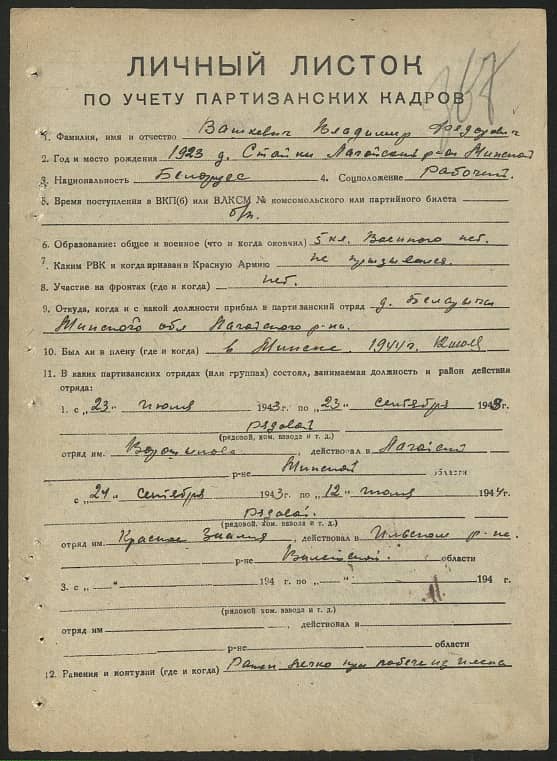 ЛИЧНЫЙ ЛИСТОК
ПО УЧЕТУ ПАРТИЗАНСКИХ КАДРОВ
1. Фамилия, имя и отчество Вашкевич Владимир Федорович
2. Год и место рождения 1923 д. Стайки Лагойский р-он Минской
3. Национальность Белорус 4. Соцположение Рабочий.
5. Время поступления в ВКП(б) или ВЛКСМ № комсомольского или партийного билета
б/п.
6. Образование: общее и военное (что и когда окончил) 5 кл. Военного нет.
7. Каким РВК и когда призван в Красную Армию не призывался.
8. Участие на фронтах (где и когда) нет.
9. Откуда, когда и с какой должности прибыл в партизанский отряд д.
Минского обл Лагойского р-на.
10. Был ли в плену (где и когда) в Минске 1944 г.
11. В каких партизанских отрядах (или группах) состоял, занимаемая должность и район действия
отряда:
1. с „23" июля 1943 г. по „23" сентября 1943 г.
рядовой
(рядовой, ком. взвода и т. д.)
отряд им. Ворошилова, действовал в Лагойский
р-не Минской области
с „24" сентября 1943 г. по „12" июля 1944 г.
рядовой.
(рядовой, ком. взвода и т. д.)
отряд им. Красное Знамя, действовал в Ильском р-не.
р-не Вилейской. области
3. с „ — " 194 г. по „ — " 194 г.
(рядовой ком. взвода и т. д.)
отряд им , действовал в
р-не области
12. Ранения и контузии (где и когда) Ранен легко при побеге из плена